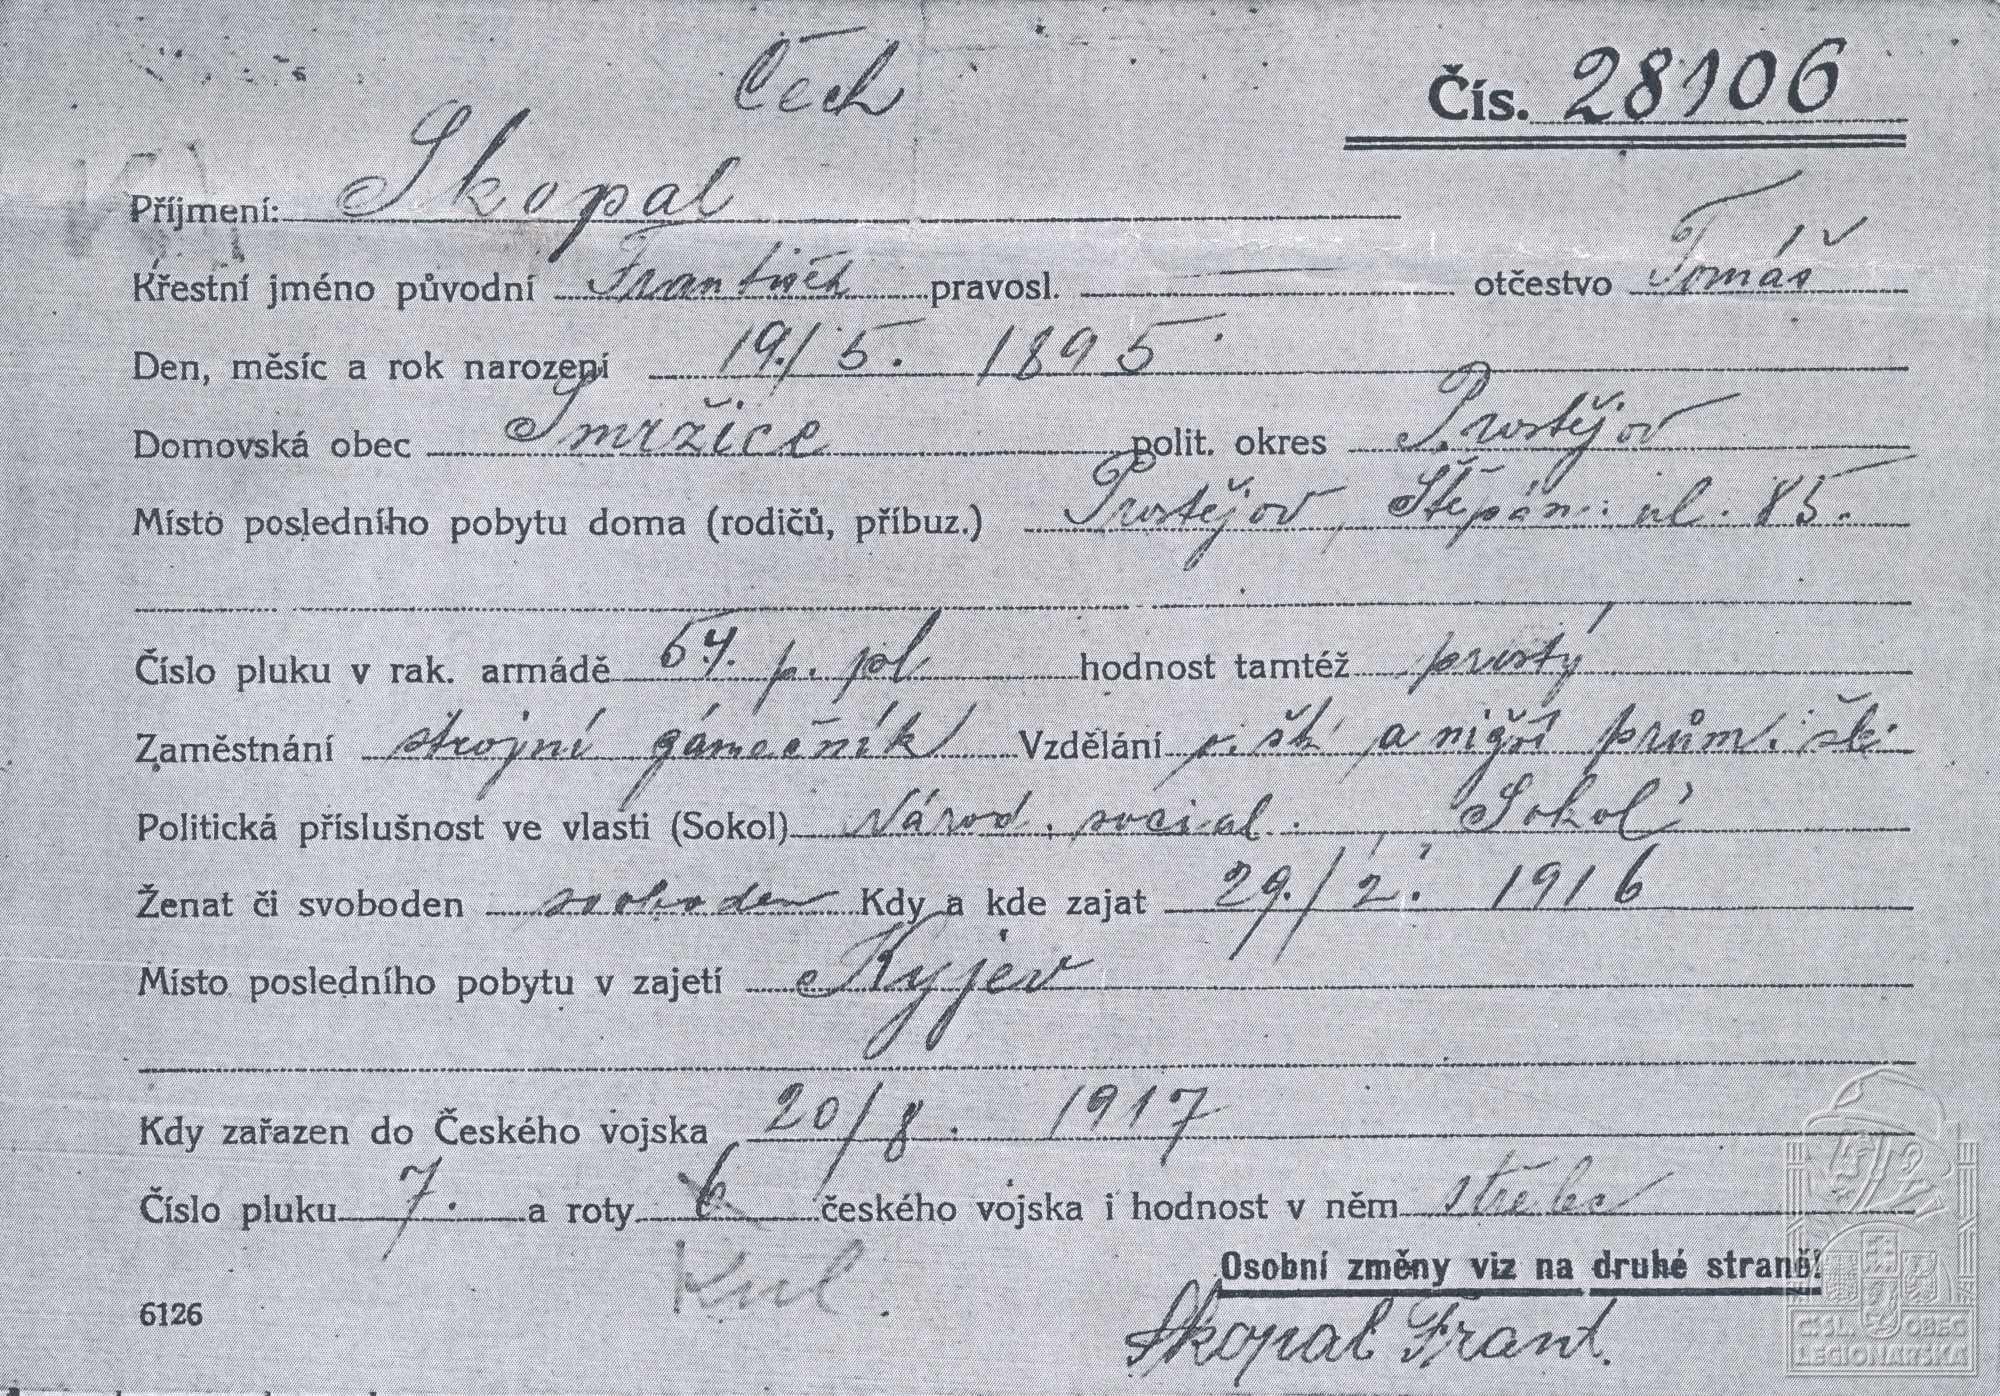 Čech
Čís. 28106
Příjmení: Skopal
Křestní jméno původní František pravosl. — otčestvo Tomáš
Den, měsíc a rok narození 19./5. 1895.
Domovská obec Smržice polit. okres Prostějov
Místo posledního pobytu doma (rodičů, příbuz.) Prostějov, Štěpán. ul. 85.
Číslo pluku v rak. armádě p. pl. hodnost tamtéž prostý
Zaměstnání strojní zámečník Vzdělání šk. a nižší prům. šk.
Politická příslušnost ve vlasti (Sokol) Národ. social., Sokol
Ženat či svoboden svoboden Kdy a kde zajat 29./2. 1916
Místo posledního pobytu v zajetí Kyjev
Kdy zařazen do Českého vojska 20/8. 1917
Číslo pluku 7. a roty 6 českého vojska i hodnost v něm střelec
Kul.
Osobní změny viz na druhé straně!
6126
Skopal Frant.
ČSL. OBEC
LEGIONÁŘSKÁ